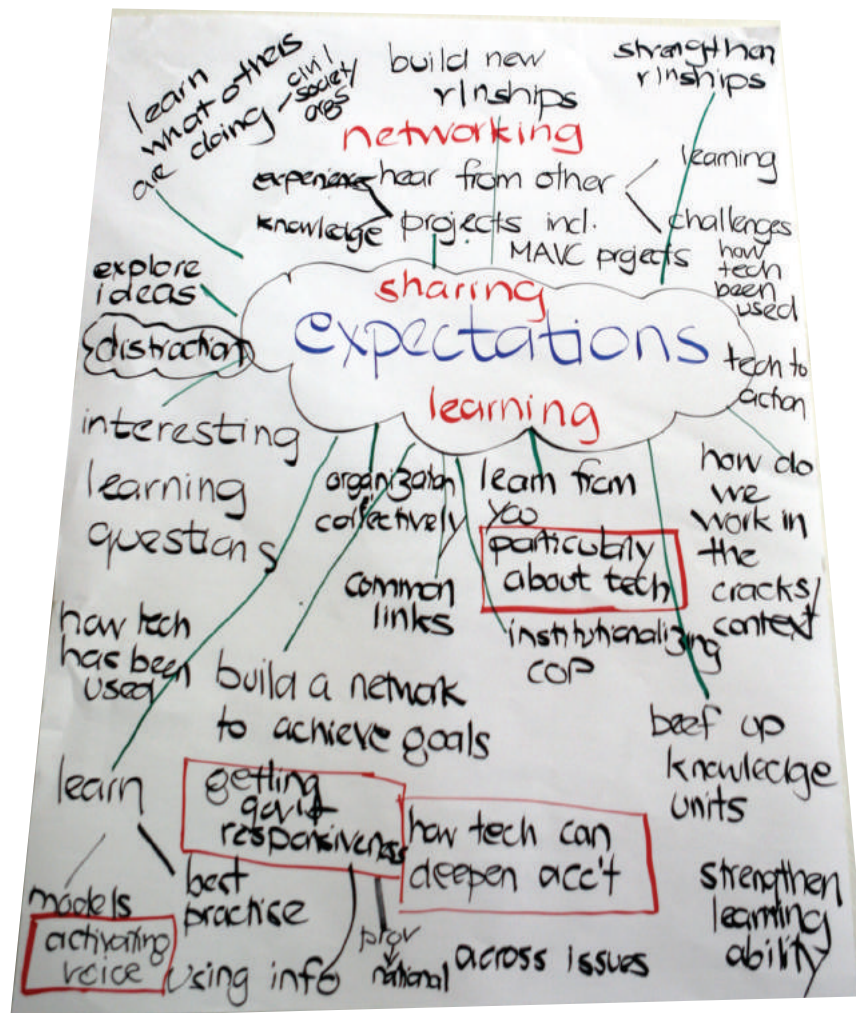 learn
what others
are doing
civil
society
orgs
build new
rlnships
strengthen
rlnships
networking
experiences
knowledge
hear from other
projects incl.
MAVC projects
learning
challenges
how
tech
been
used
explore
ideas
distraction
sharing
expectations
learning
tech to
action
interesting
learning
questions
organization
collectively
common
links
learn from
you
particularly
about tech
institutionalizing
COP
how do
we
work in
the
cracks/
context
how tech
has been
used
build a network
to achieve goals
beef up
knowledge
units
learn
getting
gov't
responsiveness
how tech can
deepen acc't
models
activating
voice
best
practise
using info
prov
national
across issues
strengthen
learning
ability